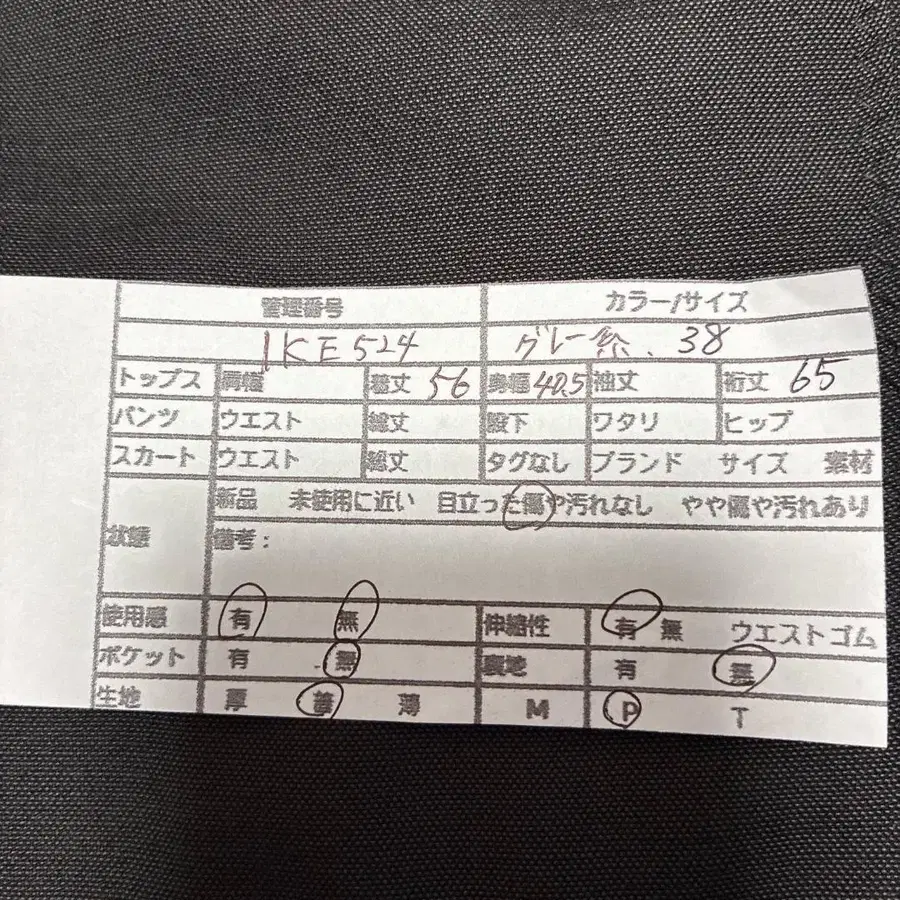 管理番号 カラー/サイズ
IKE524 グレー系、38
トップス 肩幅 着丈 56 身幅 40.5 袖丈 裄丈 65
パンツ ウエスト 総丈 股下 ワタリ ヒップ
スカート ウエスト 総丈 タグなし ブランド サイズ 素材
状態 新品 未使用に近い 目立った傷や汚れなし やや傷や汚れあり
備考：
使用感 有 無 伸縮性 有 無 ウエストゴム
ポケット 有 無 裏地 有 無
生地 厚 普 薄 M P T